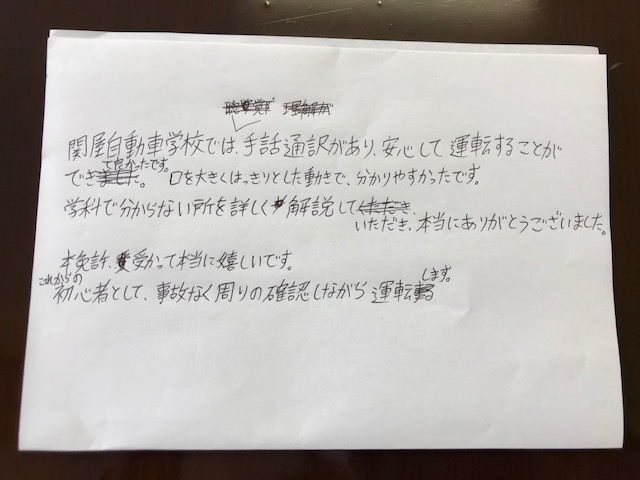 関屋自動車学校では、手話通訳があり、安心して運転することが
できて良かったです。口を大きくはっきりとした動きで、分かりやすかったです。
学科で分からない所を詳しく解説していただき、本当にありがとうございました。
本免許、受かって本当に嬉しいです。
これからの初心者として、事故なく周りの確認しながら運転します。